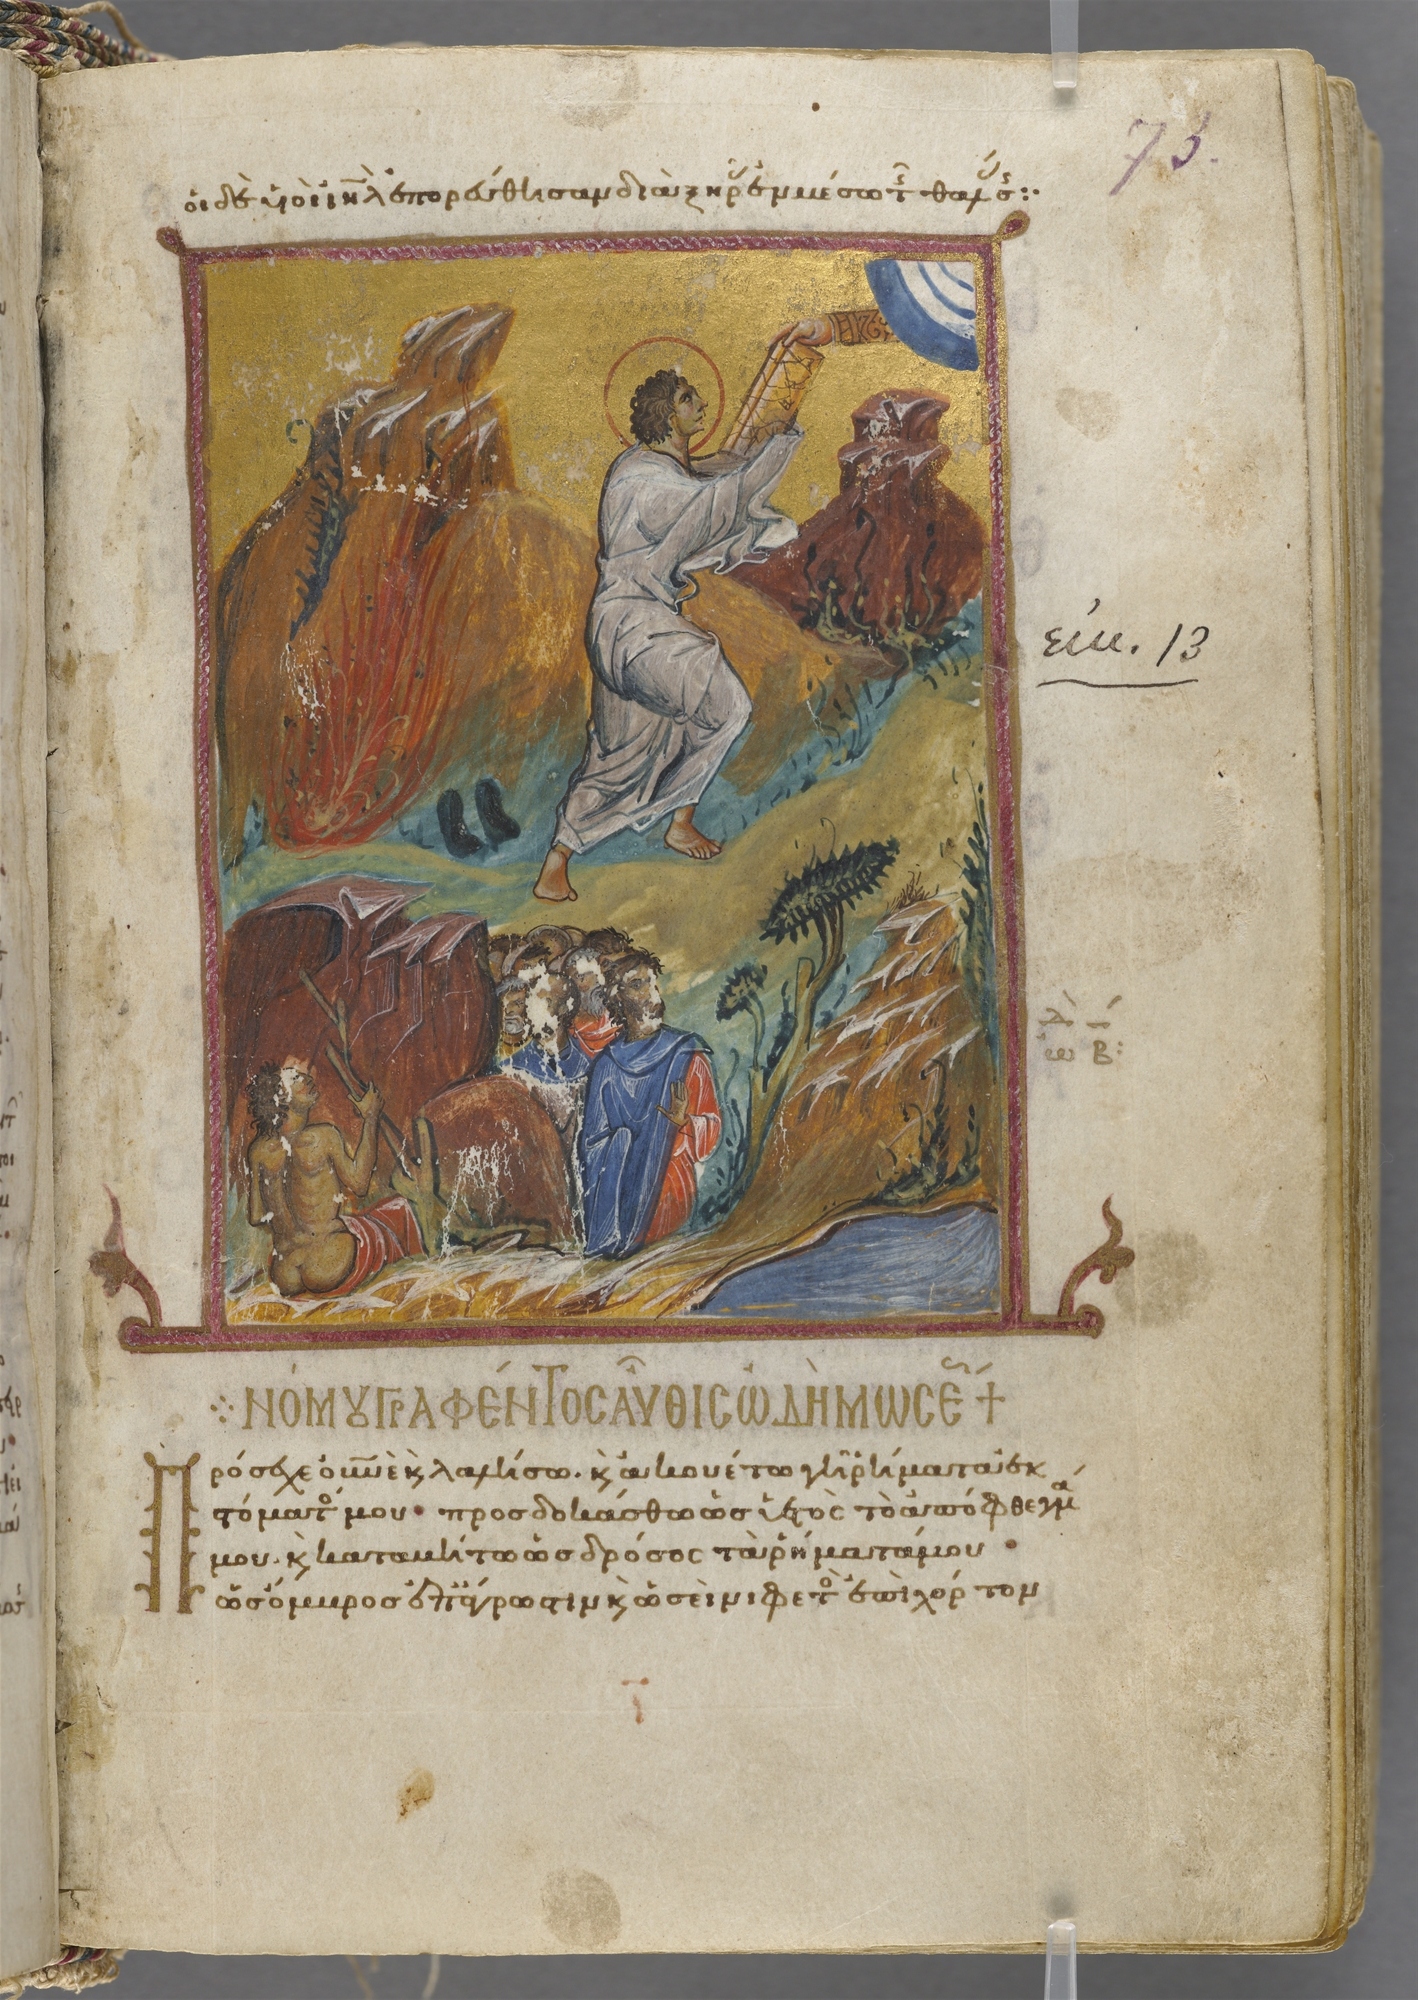 73.
οἱ δὲ υἱοὶ ιηλ ἐπορεύθησαν διὰ ξηρ ἐν μέσω τ θαλ
εἰκ. 13
ω Β:
ΝΌΜΟΥ ΓΡΑΦΈΝΤΟΣ ΑΥΘΙΣ ὨΔῊ ΜΩΣΕ +
Πρόσχε οὐνὲ κ λαλήσω. κ ἀκουέτω γῆ ῥήματα ἐκ
στόματ μου· προσδοκάσθω ὡς ὑετὸς τὸ ἀπόφθεγμα
μου. κ καταβήτω ὡς δρόσος τὰ ῥήματά μου
ὡς ὄμβρος ἐπ ἄγρωστιν κ ὡσεὶ νιφετὸ ἐπὶ χόρτον